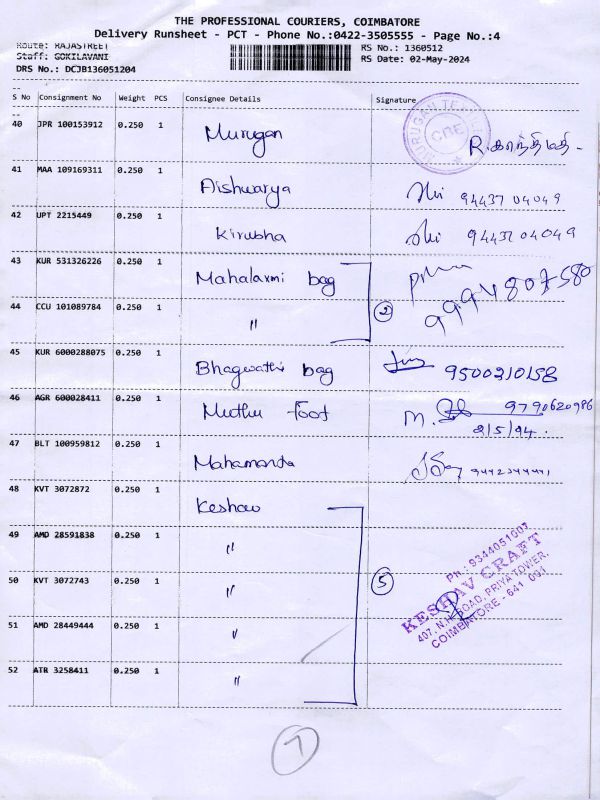 THE PROFESSIONAL COURIERS, COIMBATORE
Delivery Runsheet - PCT - Phone No.:0422-3505555 - Page No.:4
Route: RAJASTREET
RS No.: 1360512
Staff: GOKILAVANI
RS Date: 02-May-2024
DRS No.: DCJB136051204
S No Consignment No Weight PCS Consignee Details Signature
40 JPR 100153912 0.250 1 Murugan R.காந்திமதி
MURUGAN TE
CBE
41 MAA 109169311 0.250 1 Aishwarya 94437 04049
42 UPT 2215449 0.250 1 Kirubha 94437 04049
43 KUR 531326226 0.250 1 Mahalaxmi bag
9994807580
44 CCU 101089784 0.250 1 " 2
45 KUR 6000288075 0.250 1 Bhagwathi bag 9500210158
46 AGR 600028411 0.250 1 Muthu foot M. 9790620986
2/5/24.
47 BLT 100959812 0.250 1 Mahamanta
48 KVT 3072872 0.250 1 Keshav
49 AMD 28591838 0.250 1 "
50 KVT 3072743 0.250 1 " 5
Ph : 9344051007
KESHAV CRAFT
407, N.H. ROAD, PRIYA TOWER,
COIMBATORE - 641 001
51 AMD 28449444 0.250 1 "
52 ATR 3258411 0.250 1 "
7